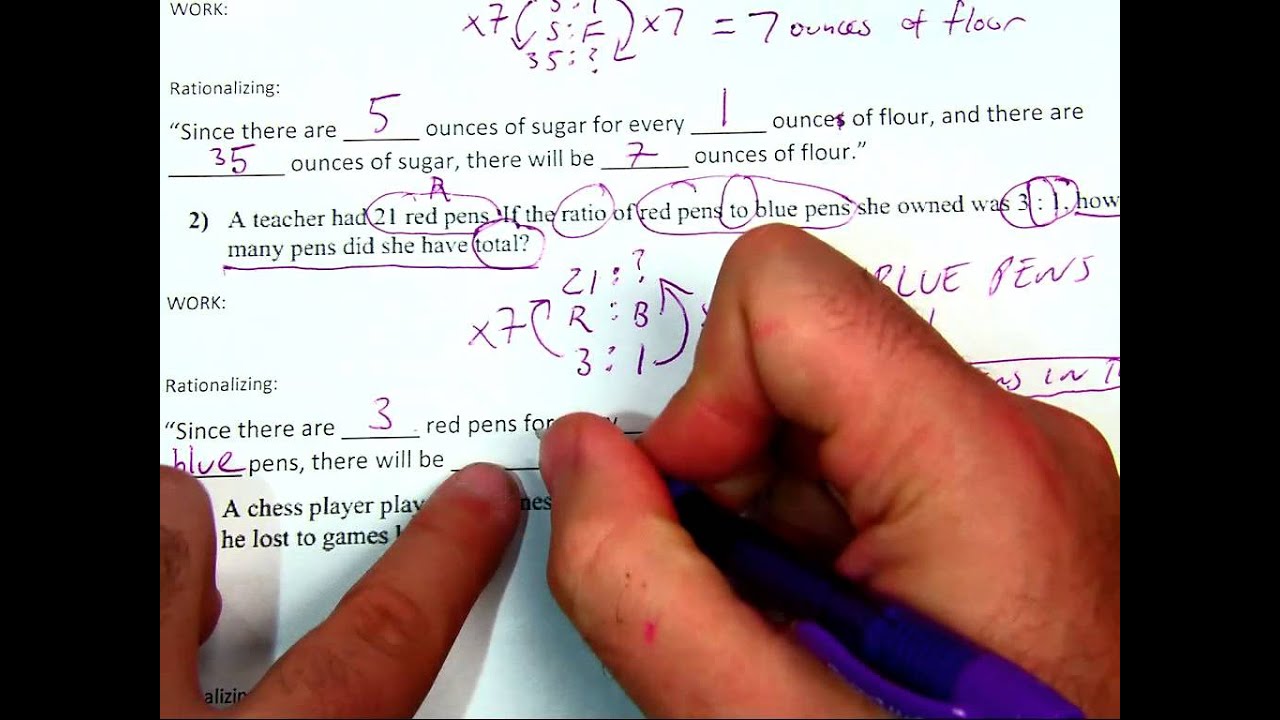 WORK:
x7 S:F x7 = 7 ounces of flour
35:?
Rationalizing:
“Since there are 5 ounces of sugar for every 1 ounces of flour, and there are
35 ounces of sugar, there will be 7 ounces of flour.”
R
2) A teacher had 21 red pens. If the ratio of red pens to blue pens she owned was 3 : 1, how
many pens did she have total?
21:?
BLUE PENS
WORK:
x7 R:B
3:1
IN
Rationalizing:
“Since there are 3 red pens for
blue pens, there will be
A chess player
he lost to games